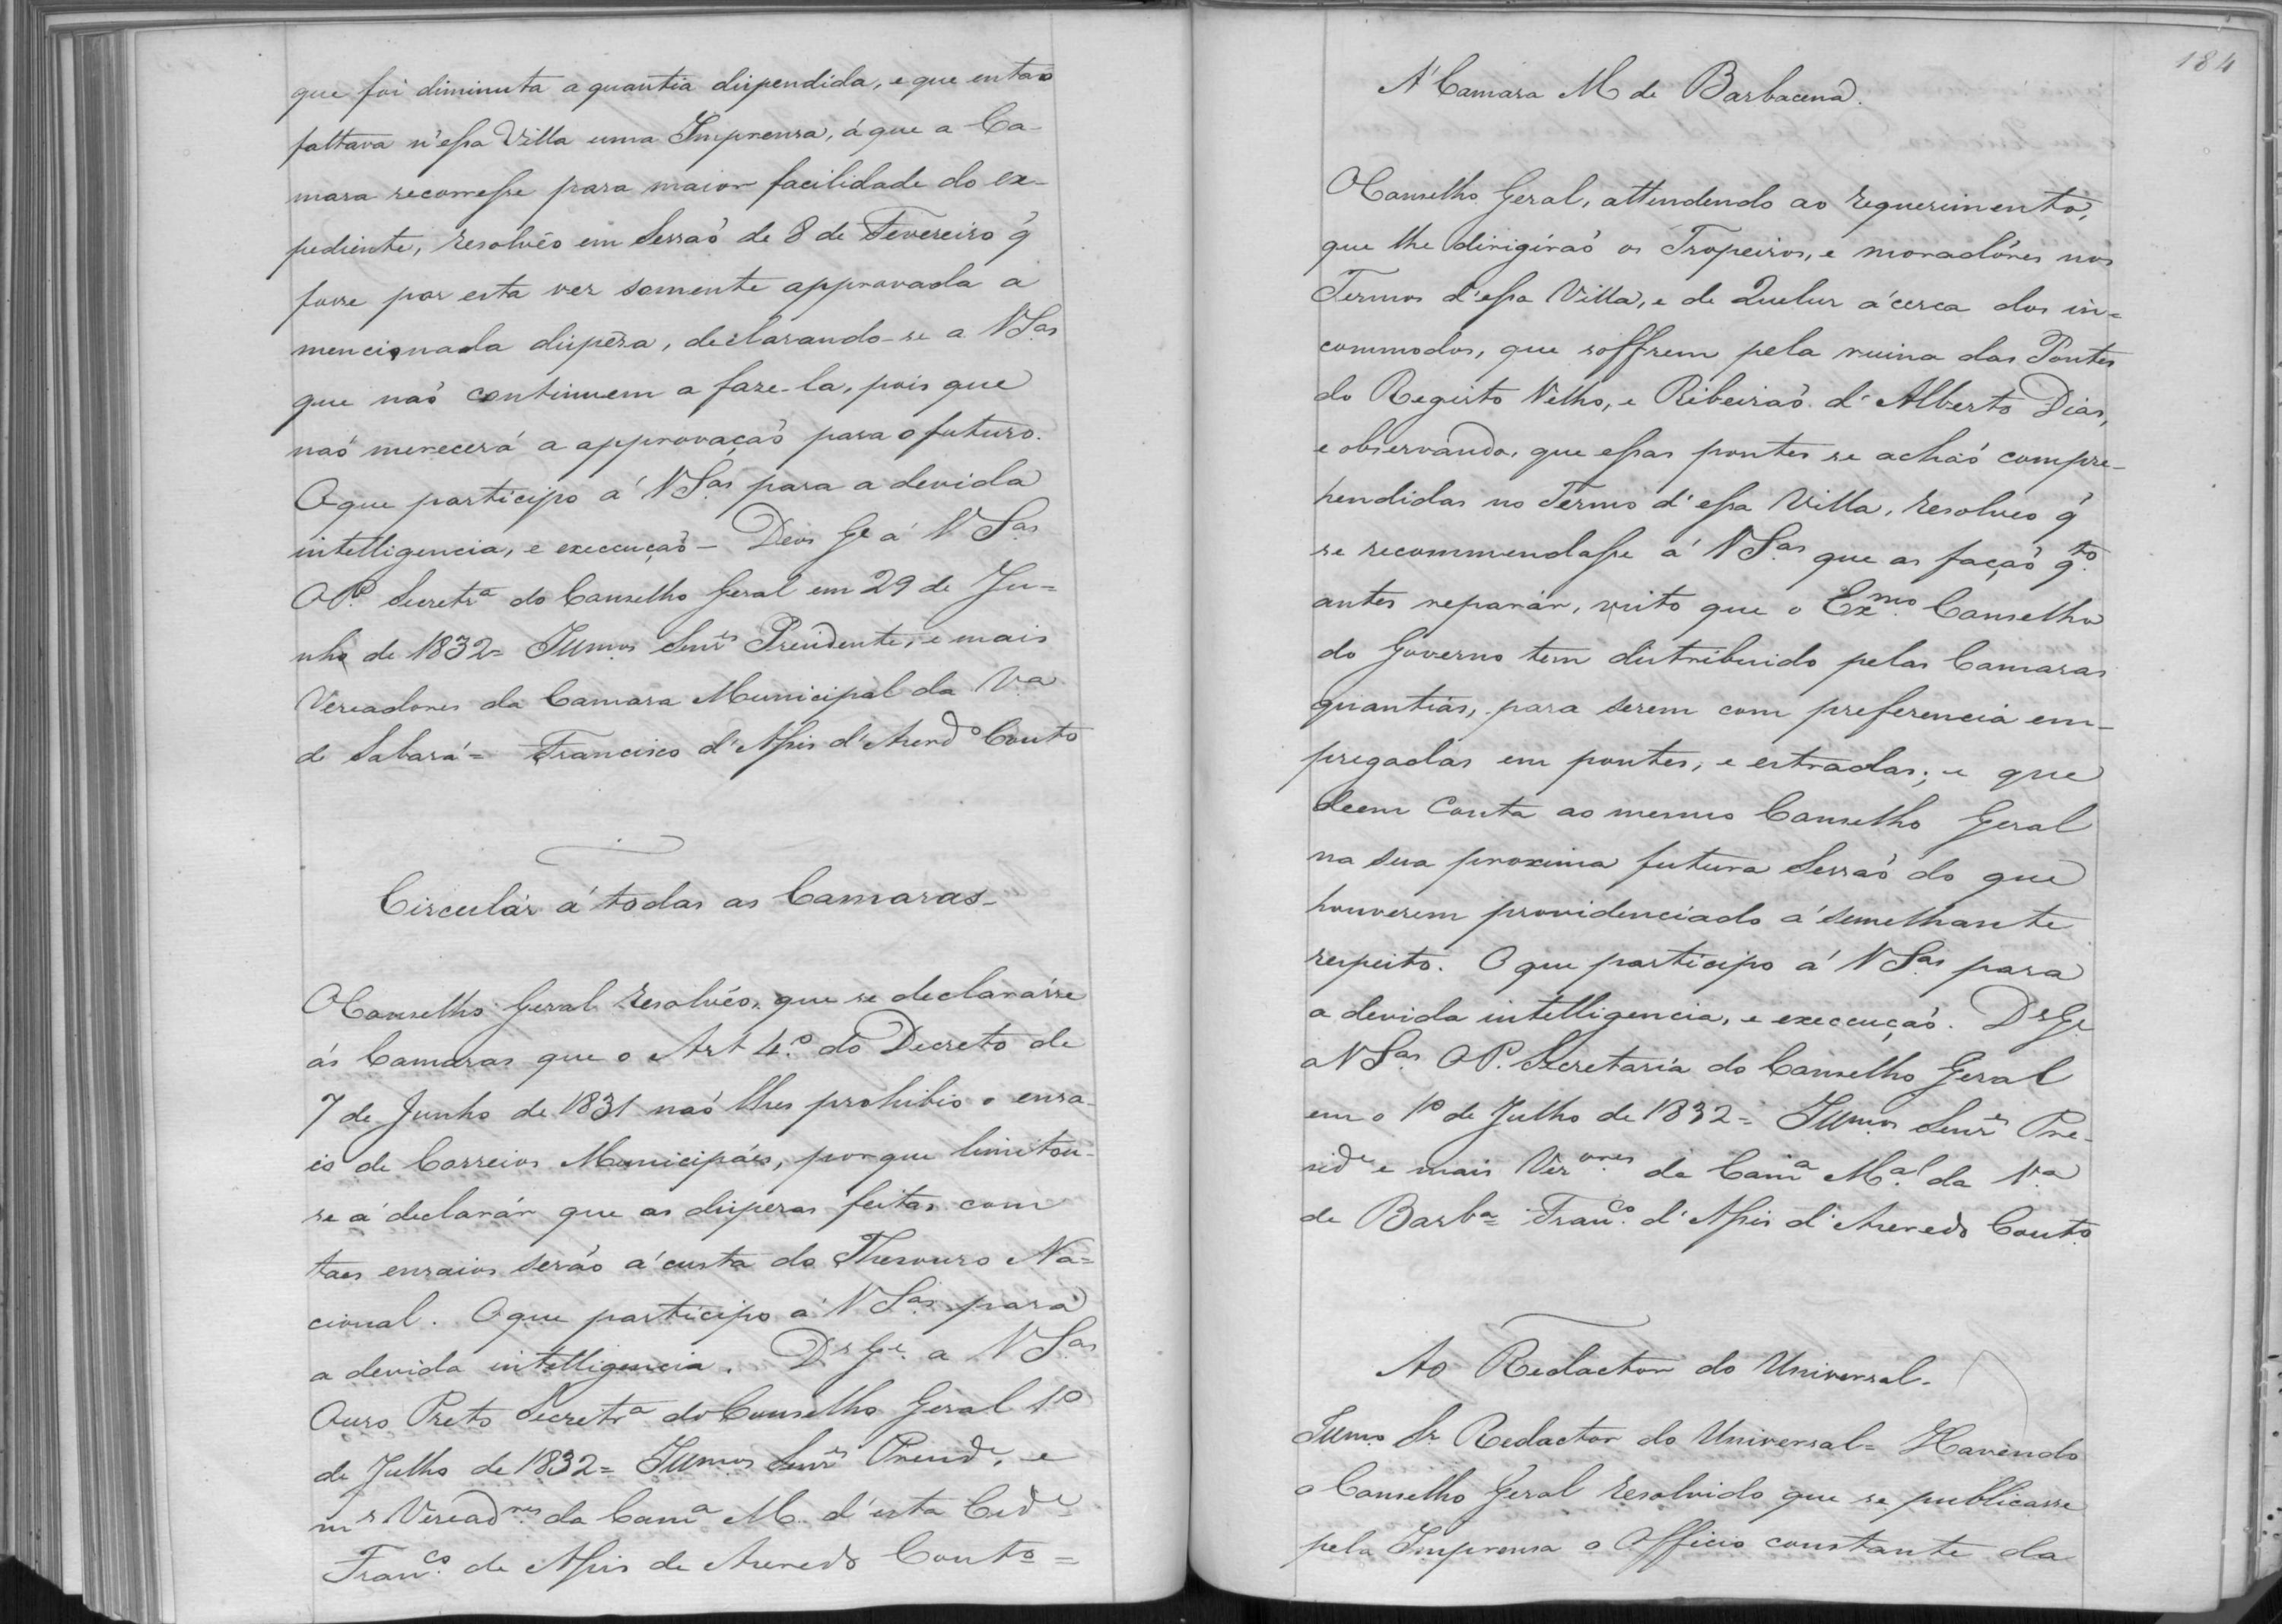 que foi diminuta a quantia dispendida, e que entaõ
faltava n'essa Villa uma Imprensa, á que a Ca-
mara recorresse para maior facilidade do ex-
pediente, resolvêo em Sessaõ de 8 de Fevereiro q̃
fosse por esta vez somente approvada a
mencionada dispêza, declarando-se a V S.as
que naõ continuem a faze-la, pois que
naõ merecerá a approvaçaõ para o futuro.
O que participo á V S.as para a devida
intelligencia, e execcuçaõ - Deos G.e á V S.as
O P. Secretr.a do Conselho Geral em 29 de Ju-
nho de 1832 = Illmos Snr.es Prezidente, e mais
Vereadores da Camara Municipal da V.a
de Sabará = Francisco d'Assis d'Azevd.o Couto
Circulár á todas as Camaras -
O Conselho Geral resolvêo, que se declarásse
ás Camaras que o Art 4.o do Decreto de
7 de Junho de 1831 naõ lhes prohibio o ensa-
io de Correios Municipáes, porque limitou-
se á declarár que as dispezas feitas com
taes ensaios serão á custa do Thesouro Na-
cional. O que participo á V S.as para
a devida intelligencia. D.s G.e a V S.as
Ouro Preto Secretr.a do Conselho Geral 1.o
de Julho de 1832 = Illmos Snr.es Prezid.e, e
m.s Veread.res da Cam.a M. d'esta Cid.e
Fran.co de Assis de Azevedo Couto =
184
A' Camara M de Barbacena.
O Conselho Geral, attendendo ao requerimento,
que lhe dirigíraõ os Tropeiros, e moradôres nos
Termos d'essa Villa, e de Queluz á cerca dos in-
commodos, que soffrem pela ruina das Pontes
do Registo Velho, e Ribeiraõ d'Alberto Dias,
e observando, que essas pontes se achaõ compre-
hendidas no Termo d'essa Villa, resolveo q̃
se recommendasse á V S.as que as façaõ q.to
antes reparár, visto que o Ex.mo Conselho
do Governo tem distribuido pelas Camaras
quantias, para serem com preferencia em-
pregadas em pontes, e estradas; e que
deem Conta ao mesmo Conselho Geral
na sua proxima futura Sessaõ do que
houverem providenciado á semelhante
respeito. O que participo á V S.as para
a devida intelligencia, e execcuçaõ. D.s G.e
a V S.as O P. Secretaria do Conselho Geral
em o 1.o de Julho de 1832 = Illmos Snr.es Pre-
zid.e e mais Ver.ores da Cam.a M.al da V.a
de Barb.a = Fran.co d'Assis d'Azevedo Couto
Ao Redactor do Universal -
Illmo Sr. Redactor do Universal = Havendo
o Conselho Geral resolvido que se publicasse
pela Imprensa o Officio constante da